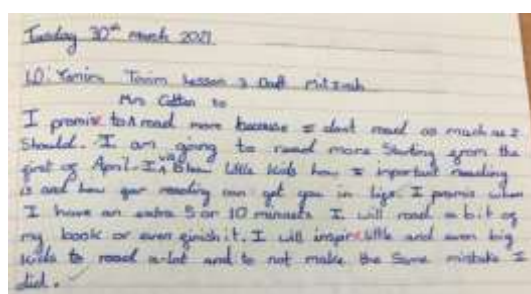 Tuesday 30th March 2021
LO: Yamim Tovim Lesson 3 Daff Mitzvah
Mrs Cotton to
I promise to read more because I dont read as much as I
Should. I am going to read more Starting from the
first of April. I will Show little kids how inportant reading
is and how far reading can get you in life. I promis when
I have an extra 5 or 10 minuets I will read a bit of
my book or even finish it. I will inspire little and even big
kids to read a-lot and to not make the Same mistake I
did.